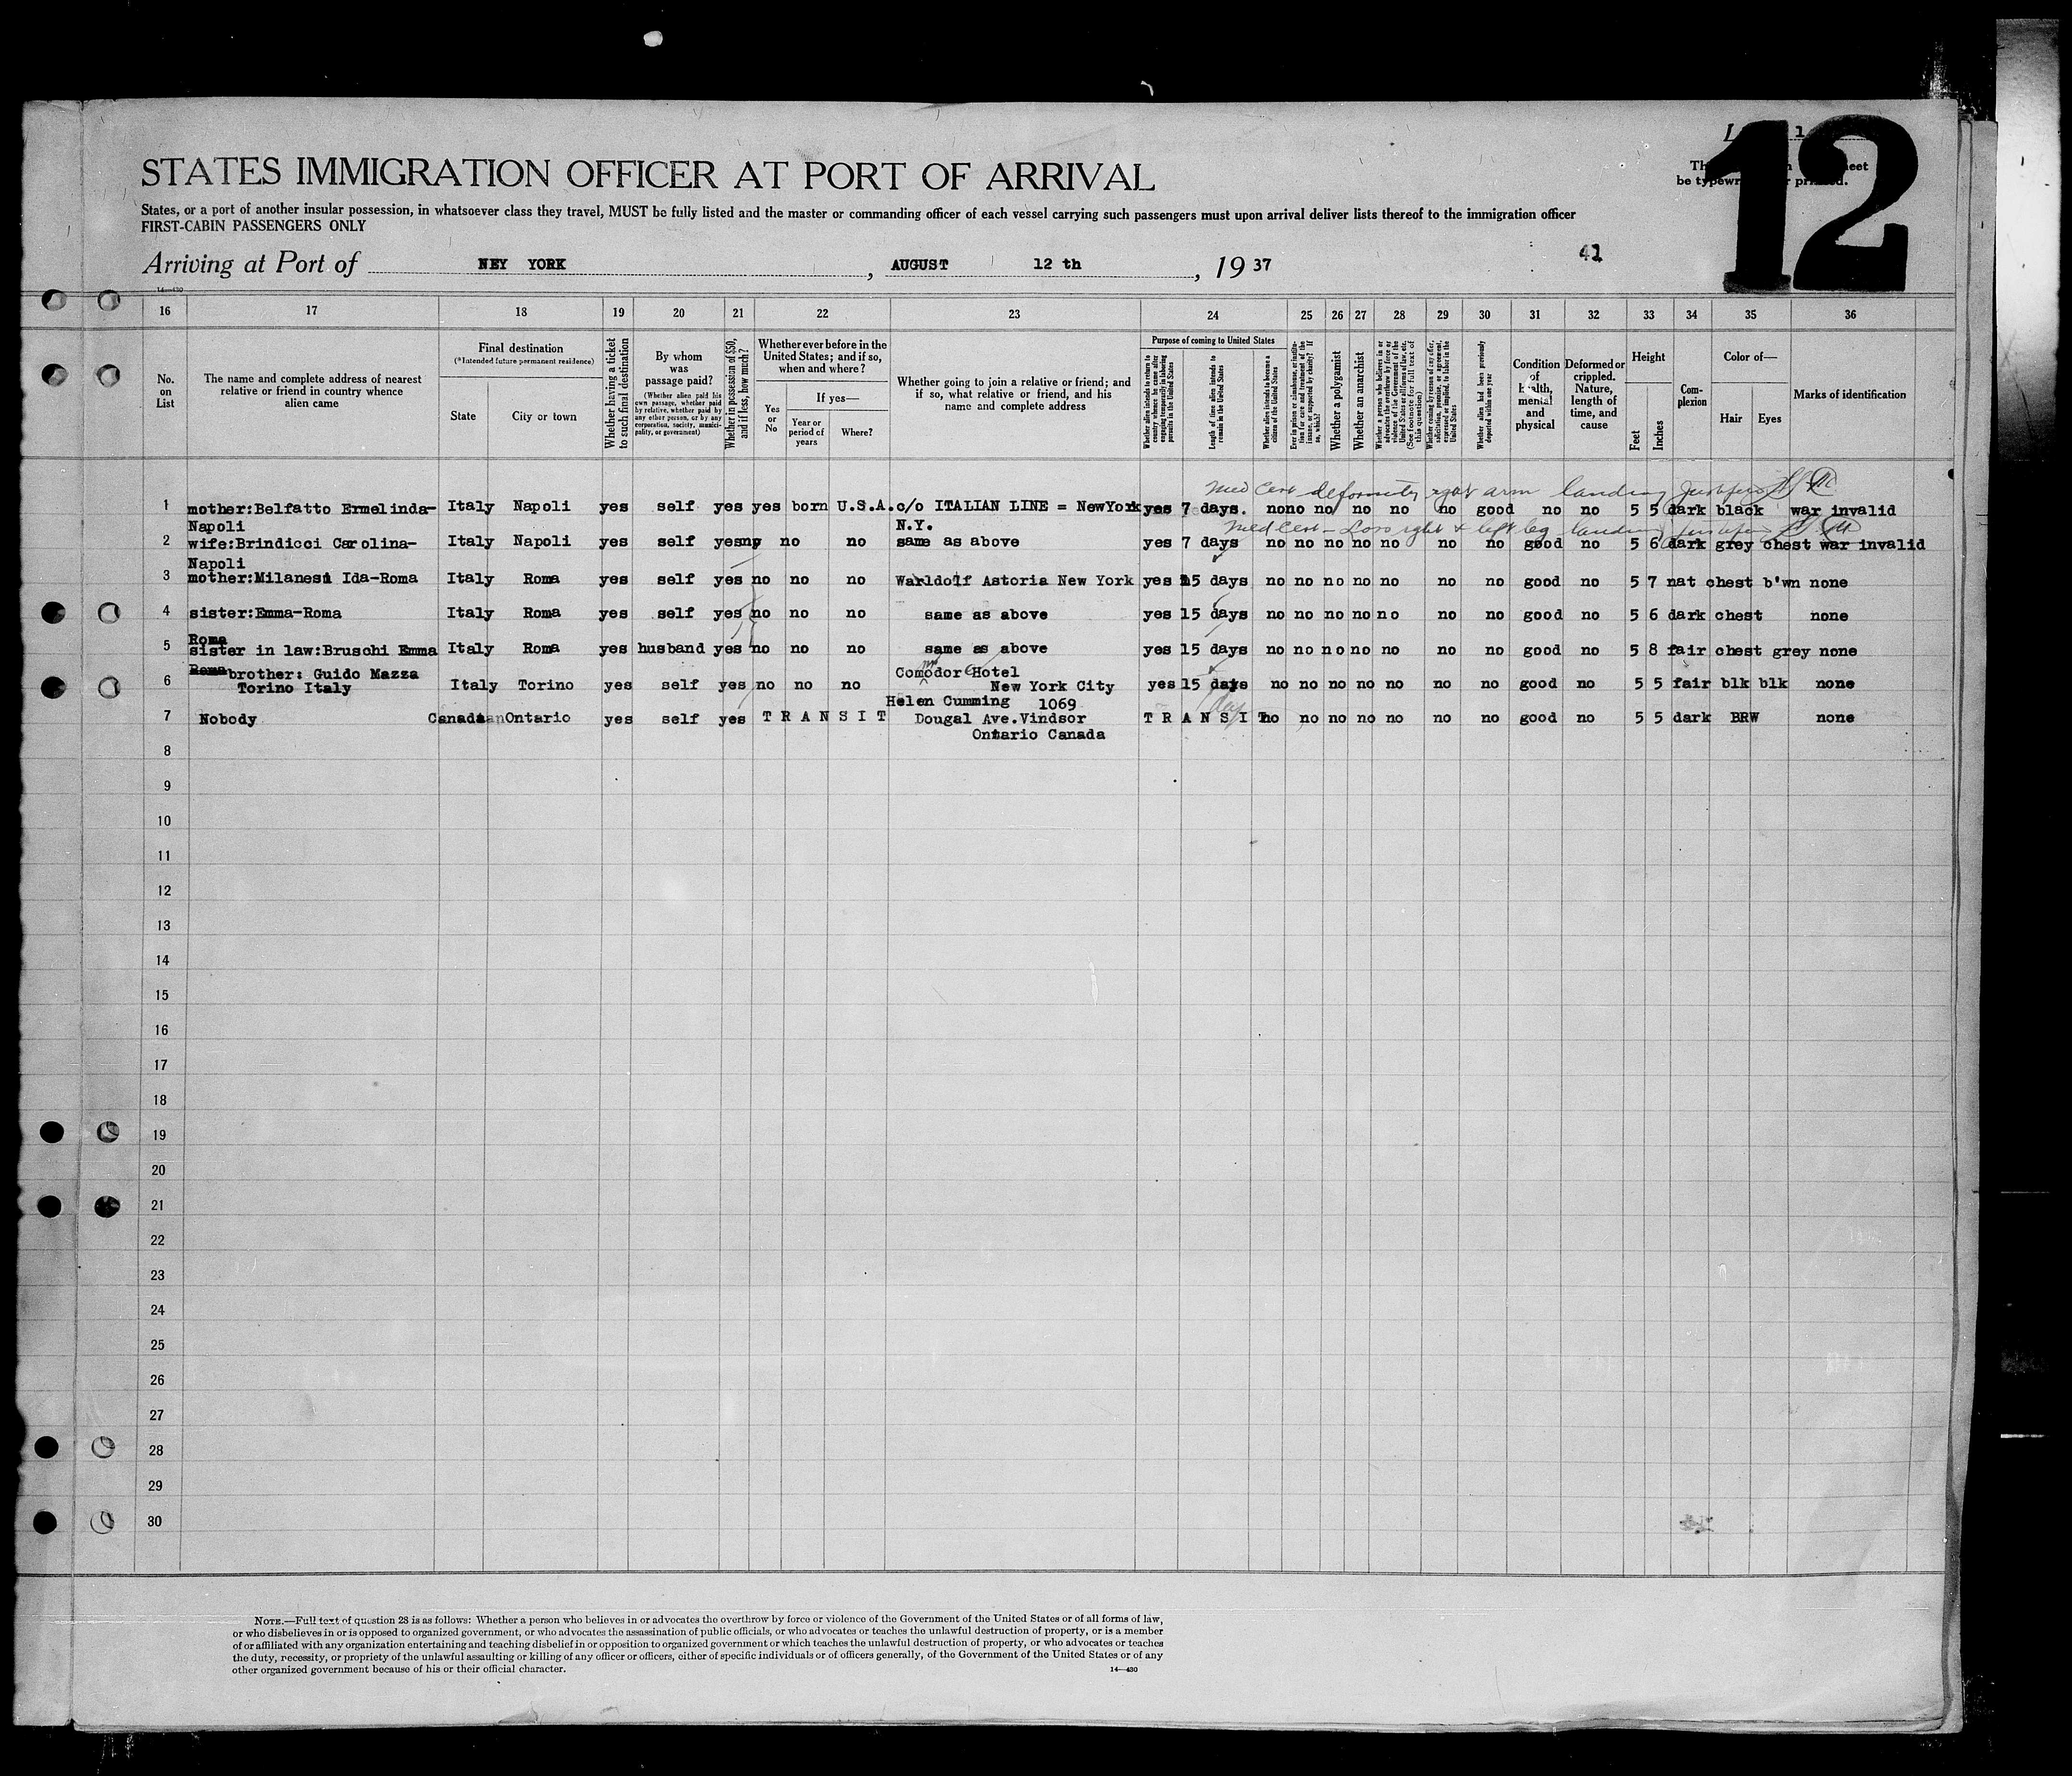 12
STATES IMMIGRATION OFFICER AT PORT OF ARRIVAL
be typewr
States, or a port of another insular possession, in whatsoever class they travel, MUST be fully listed and the master or commanding officer of each vessel carrying such passengers must upon arrival deliver lists thereof to the immigration officer
FIRST-CABIN PASSENGERS ONLY
Arriving at Port of NEY YORK , AUGUST 12 th , 19 37
14—430
16 17 18 19 20 21 22 23 24 25 26 27 28 29 30 31 32 33 34 35 36
No. on List
The name and complete address of nearest relative or friend in country whence alien came
Final destination
(*Intended future permanent residence)
State
City or town
Whether having a ticket to such final destination
By whom was passage paid?
(Whether alien paid his own passage, whether paid by relative, whether paid by any other person, or by any corporation, society, municipality, or government)
Whether in possession of $50, and if less, how much?
Whether ever before in the United States; and if so, when and where?
Yes or No
If yes—
Year or period of years
Where?
Whether going to join a relative or friend; and if so, what relative or friend, and his name and complete address
Purpose of coming to United States
Whether alien intends to return to country whence he came after engaging temporarily in laboring pursuits in the United States
Length of time alien intends to remain in the United States
Whether alien intends to become a citizen of the United States
Whether a polygamist
Whether an anarchist
Whether alien had been previously deported within one year
Condition of health, mental and physical
Deformed or crippled. Nature, length of time, and cause
Height
Feet
Inches
Complexion
Color of—
Hair
Eyes
Marks of identification
Med Cert deformity right arm landing
1 mother:Belfatto Ermelinda- Italy Napoli yes self yes yes born U.S.A. c/o ITALIAN LINE = NewYork yes 7 days. no no no no no no good no no 5 5 dark black war invalid
Napoli N.Y.
Med Cert - Loss right & left leg landing
2 wife:Brindicci Carolina- Italy Napoli yes self yes no no same as above yes 7 days no no no no no no no good no 5 6 dark grey chest war invalid
Napoli
3 mother:Milanesi Ida-Roma Italy Roma yes self yes no no no Warldolf Astoria New York yes 15 days no no no no no no no good no 5 7 nat chest b'wn none
4 sister:Emma-Roma Italy Roma yes self yes no no no same as above yes 15 days no no no no no no no good no 5 6 dark chest none
Roma
5 sister in law:Bruschi Emma Italy Roma yes husband yes no no no same as above yes 15 days no no no no no no no good no 5 8 fair chest grey none
Roma brother: Guido Mazza Comodor Hotel
6 Torino Italy Italy Torino yes self yes no no no New York City yes 15 days no no no no no no no good no 5 5 fair blk blk none
Helen Cumming 1069
7 Nobody Canada Ontario yes self yes TRANSIT Dougal Ave.Vindsor TRANSIT no no no no no no no good no 5 5 dark BRW none
Ontario Canada
8
9
10
11
12
13
14
15
16
17
18
19
20
21
22
23
24
25
26
27
28
29
30
NOTE.—Full text of question 28 is as follows: Whether a person who believes in or advocates the overthrow by force or violence of the Government of the United States or of all forms of law,
or who disbelieves in or is opposed to organized government, or who advocates the assassination of public officials, or who advocates or teaches the unlawful destruction of property, or is a member
of or affiliated with any organization entertaining and teaching disbelief in or opposition to organized government or which teaches the unlawful destruction of property, or who advocates or teaches
the duty, necessity, or propriety of the unlawful assaulting or killing of any officer or officers, either of specific individuals or of officers generally, of the Government of the United States or of any
other organized government because of his or their official character.
14—430